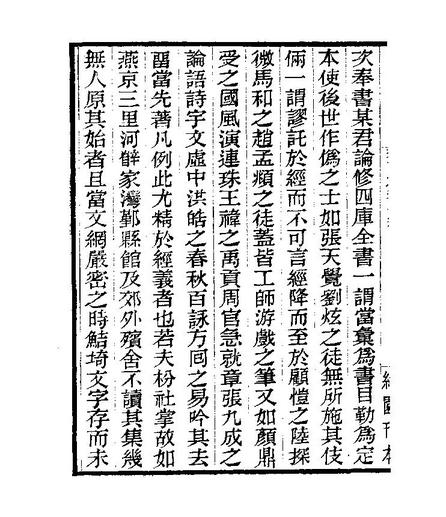 次奉書某君論修四庫全書一謂當彙為書目勒為定
本使後世作僞之士如張天覺劉炫之徒無所施其伎
倆一謂謬託於經而不可言經降而至於顧愷之陸探
微馬和之趙孟頫之徒蓋皆工師游戲之筆又如顏鼎
受之國風演連珠王禕之禹貢周官急就章張九成之
論語詩宇文虛中洪皓之春秋百詠方回之易吟其去
畱當先著凡例此尤精於經義者也若夫枌社掌故如
燕京三里河薛家灣鄞縣館及郊外殯舍不讀其集幾
無人原其始者且當文網嚴密之時鮚埼文字存而未